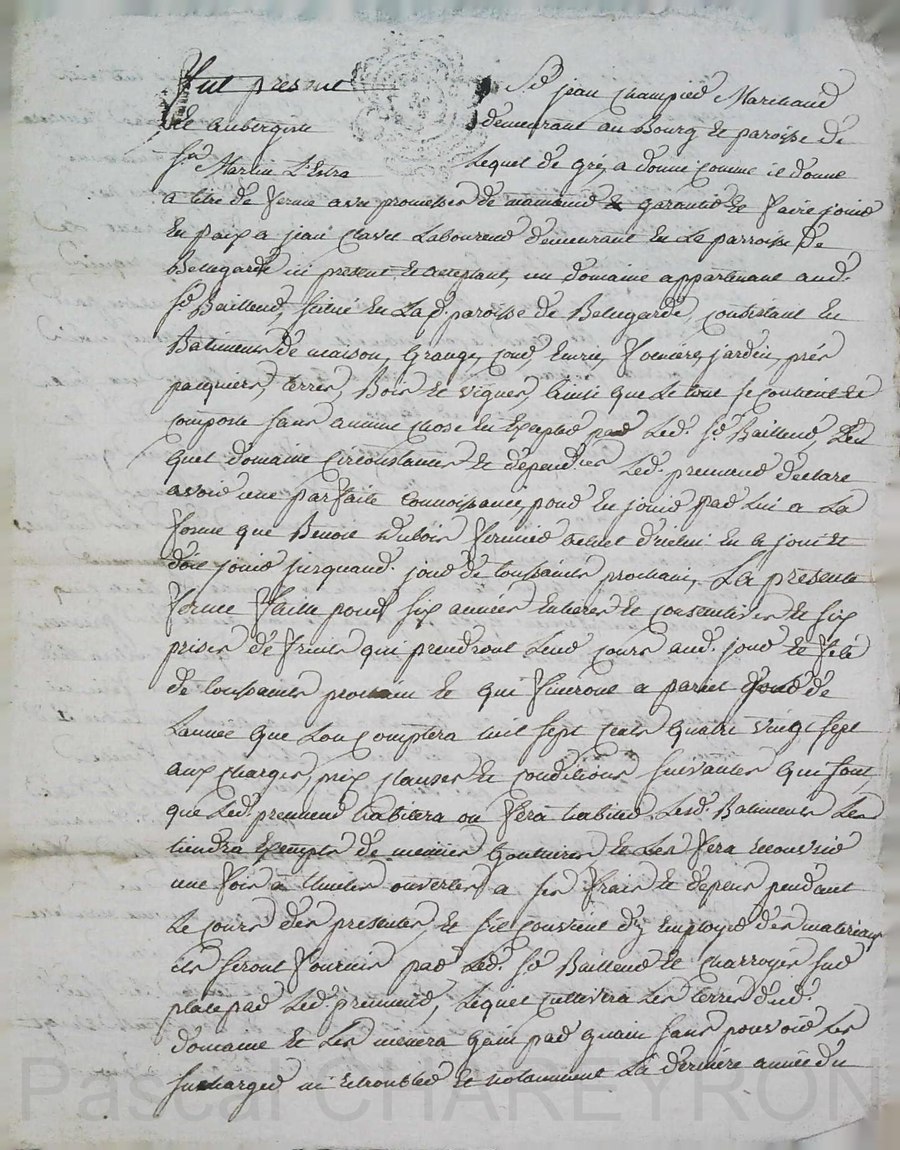 Fut present Sr jean Champied Marchand
Et aubergiste demeurant au Bourg et paroisse de
St Martin L'Estra Lequel de gré, a donné comme il donne
a titre de ferme avec promesse de maintenir et garantir et faire jouir
En paix a jean Clavel Laboureur demeurant En La parroisse de
Bellegarde ici present et acceptant, un domaine appartenant aud.
Sr Bailleur, situé En Lad. paroisse de Bellegarde, consistant En
Batiments de maison, Grange, jour, Ecurie, jardin, prés
pacquiers, terres, Bois et vignes, Ainsi que Le tout se contient et
comporte sans aucune chose En Excepter par Led. Sr Bailleur, Du
quel domaine Circonstances et dépendces Led. preneur déclare
avoir une parfaite connoissance, pour En jouir par Lui a La
forme que Benoit Dubois fermier actuel d'icelui En a joui et
doit jouir jusquaud. jour de toussaints prochain, La presente
ferme faite pour six années Entieres et consecutives et six
prises de fruits qui prendront Leur cours aud. jour et fete
de toussaints prochain et qui finiront a pareil jour de
Lannée que Lon Comptera mil sept cents quatre vingt sept
aux charges, prix clauses et conditions suivantes qui sont,
que Led. preneur habitera ou fera habiter Lesd. Batiments Les
tiendra Exempts de menues Goutieres et Les fera recouvrir
une fois à thuiles ouvertes a ses frais et depens pendant
Le cours des presentes, et s'il convient d'y Employer des materiaux
ils seront fournis par Led. Sr Bailleur et charroyés sur
place par Led. preneur, Lequel cultivera Les terres dud.
domaine et Les menera Gain par guain sans pouvoir Les
surcharger ni Etroubler et notamment La derniere année du
Pascal CHAREYRON